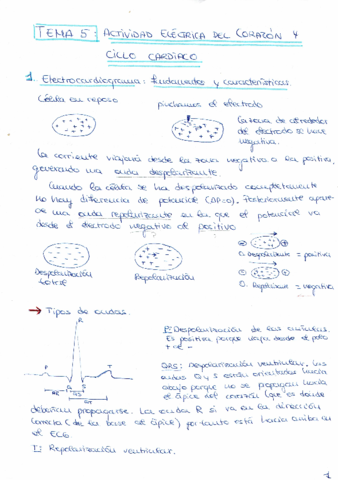 TEMA 5: ACTIVIDAD ELÉCTRICA DEL CORAZÓN Y
CICLO CARDIACO
1. Electrocardiograma: fundamentos y características.
Célula en reposo
pinchamos el electrodo
La zona de alrededor
del electrodo se hace
negativa.
La corriente viajará desde la zona negativa a la positiva,
generando una onda despolarizante.
Cuando la célula se ha despolarizado completamente
no hay diferencia de potencial (DP=0). Posteriormente apare-
ce una onda repolarizante en la que el potencial va
desde el electrodo negativo al positivo
Despolarización
total
Repolarización
O. Despolarizante = positiva
O. Repolarizante = negativa
→ Tipos de ondas.
P: Despolarización de las aurículas.
Es positiva porque viaja desde el polo
+ al -
QRS: Despolarización ventricular, las
ondas Q y S están orientadas hacia
abajo porque no se propagan hacia
el ápice del corazón (que es donde
deberían propagarse. La onda R si va en la dirección
correcta (de la base al ápice) por tanto está hacia arriba en
el ECG
T: Repolarización ventricular.
R
P
T
Q S
1